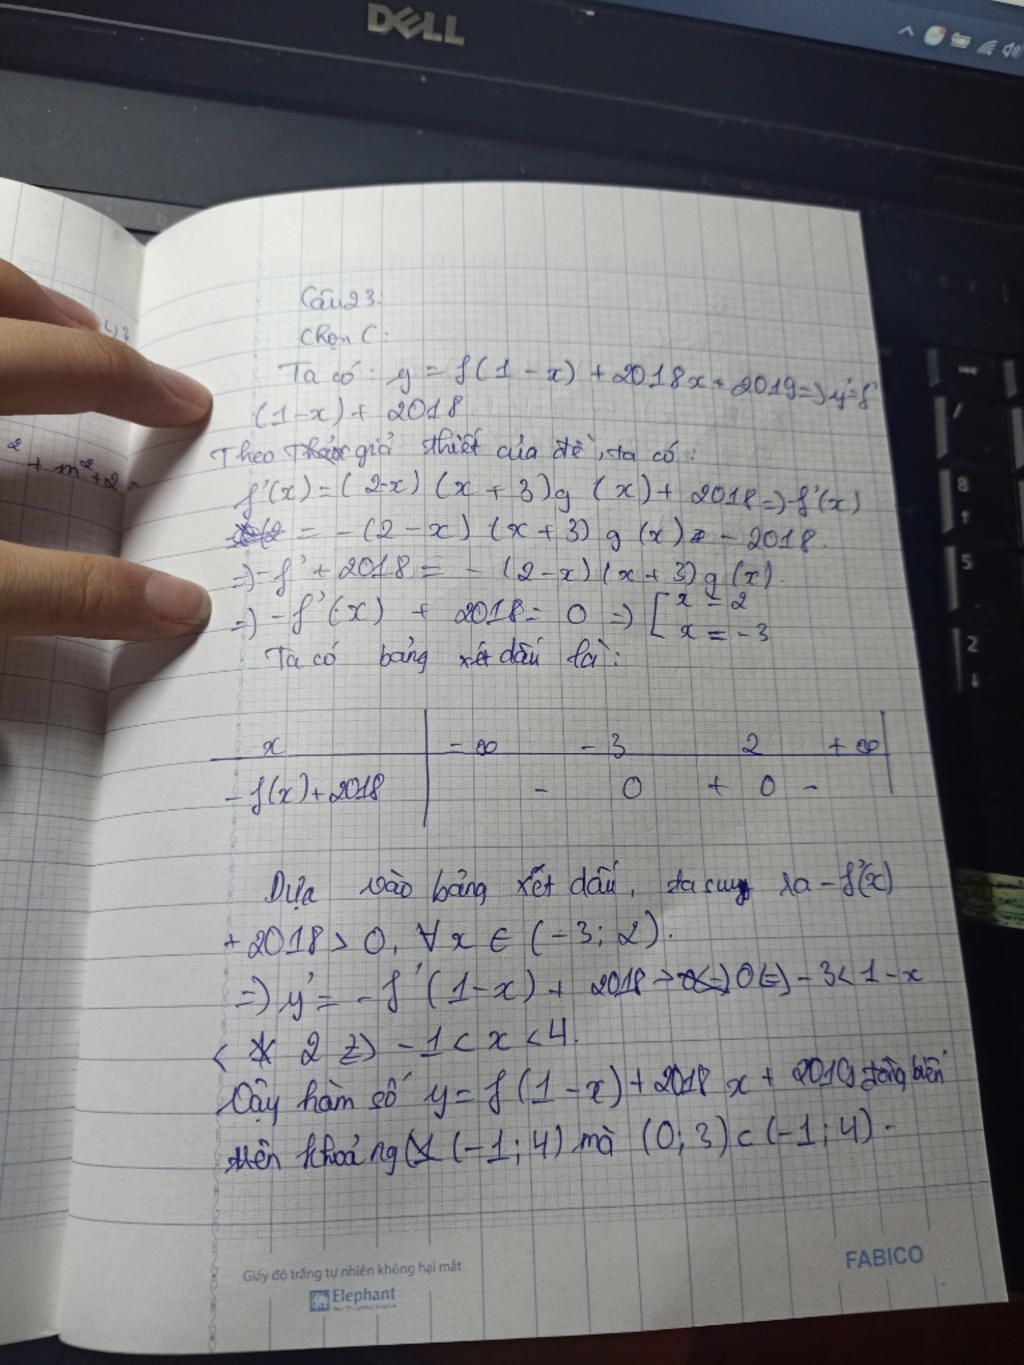 DELL
Câu 23:
Chọn C:
Ta có: y = f(1-x) + 2018x + 2019 => y' = f'
(1-x) + 2018
Theo giả thiết của đề, ta có:
f'(x) = (2-x) (x+3) g(x) + 2018 => -f'(x)
= -(2-x) (x+3) g(x) - 2018.
=> -f' + 2018 = - (2-x) (x+3) g(x).
=> -f'(x) + 2018 = 0 => [ x = 2
x = -3
Ta có bảng xét dấu là:
x -∞ -3 2 +∞
-f(x) + 2018 - 0 + 0 -
Dựa vào bảng xét dấu, ta suy ra -f'(x)
+ 2018 > 0, ∀x ∈ (-3; 2).
=> y' = -f'(1-x) + 2018 > 0 (=) -3 < 1-x
< 2 => -1 < x < 4.
Vậy hàm số y = f(1-x) + 2018x + 2019 đồng biến
trên khoảng (-1; 4) mà (0; 3) ⊂ (-1; 4).
2 + m² + 2
8
5
2
/
Giấy độ trắng tự nhiên không hại mắt
Elephant
FABICO